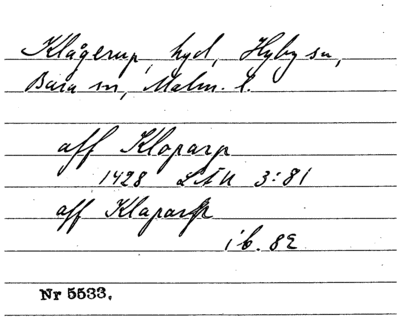 Klågerup, hyd, Hyby sn,
Bara sn, Malm. l.
aff Kloparp
1428 LÄU 3:81
aff Klaparp
ib. 82
Nr 5533.